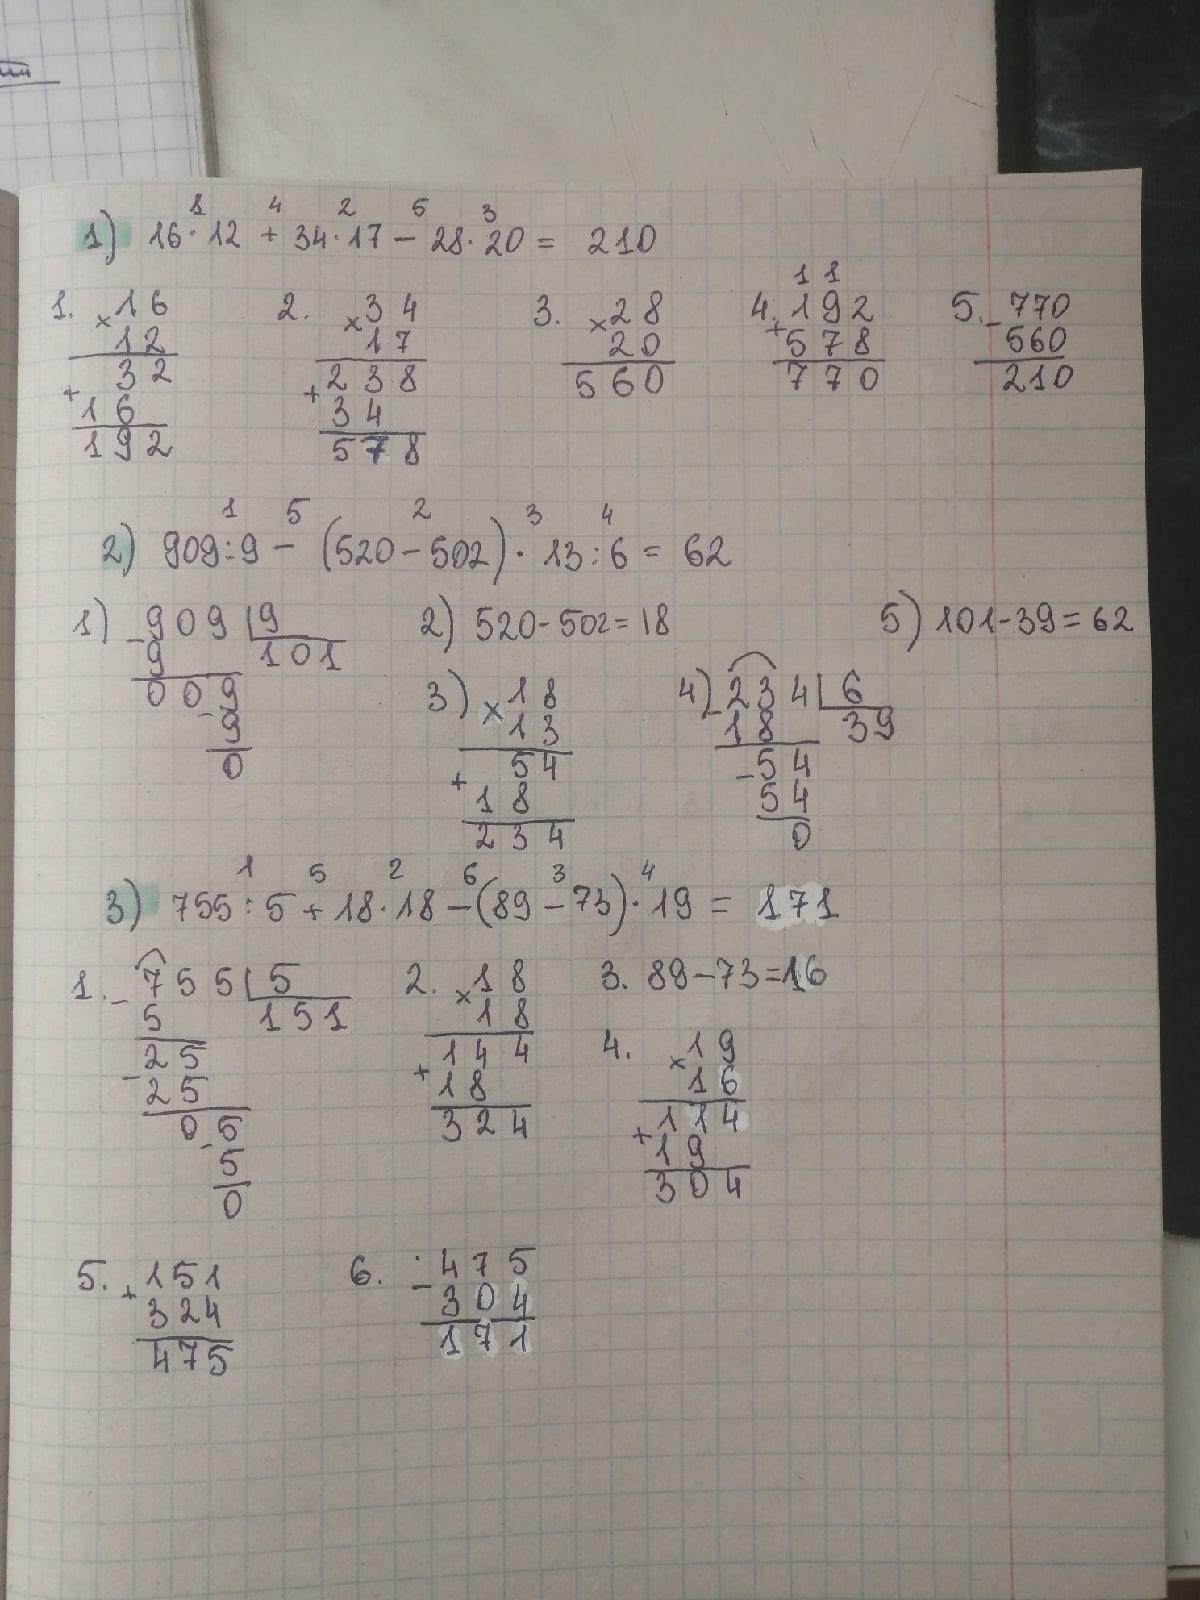 1 4 2 5 3
1) 16·12 + 34·17 − 28·20 = 210
1. 16 2. 34 3. 28 4. 11 5. 770
× 12 × 17 × 20 192 − 560
32 238 560 + 578 210
+ 16 + 34 770
192 578
1 5 2 3 4
2) 909:9 − (520−502) · 13:6 = 62
1) −909 | 9 2) 520−502=18 5) 101−39=62
9 101
009 3) ×18 4) −234 | 6
−9 13 18 39
0 54 −54
+ 18 54
234 0
1 5 2 6 3 4
3) 755:5 + 18·18 − (89−73)·19 = 171
1. −755 | 5 2. ×18 3. 89−73=16
5 151 18
−25 144 4. ×19
25 + 18 16
05 324 114
−5 + 19
0 304
5. +151 6. −475
324 304
475 171